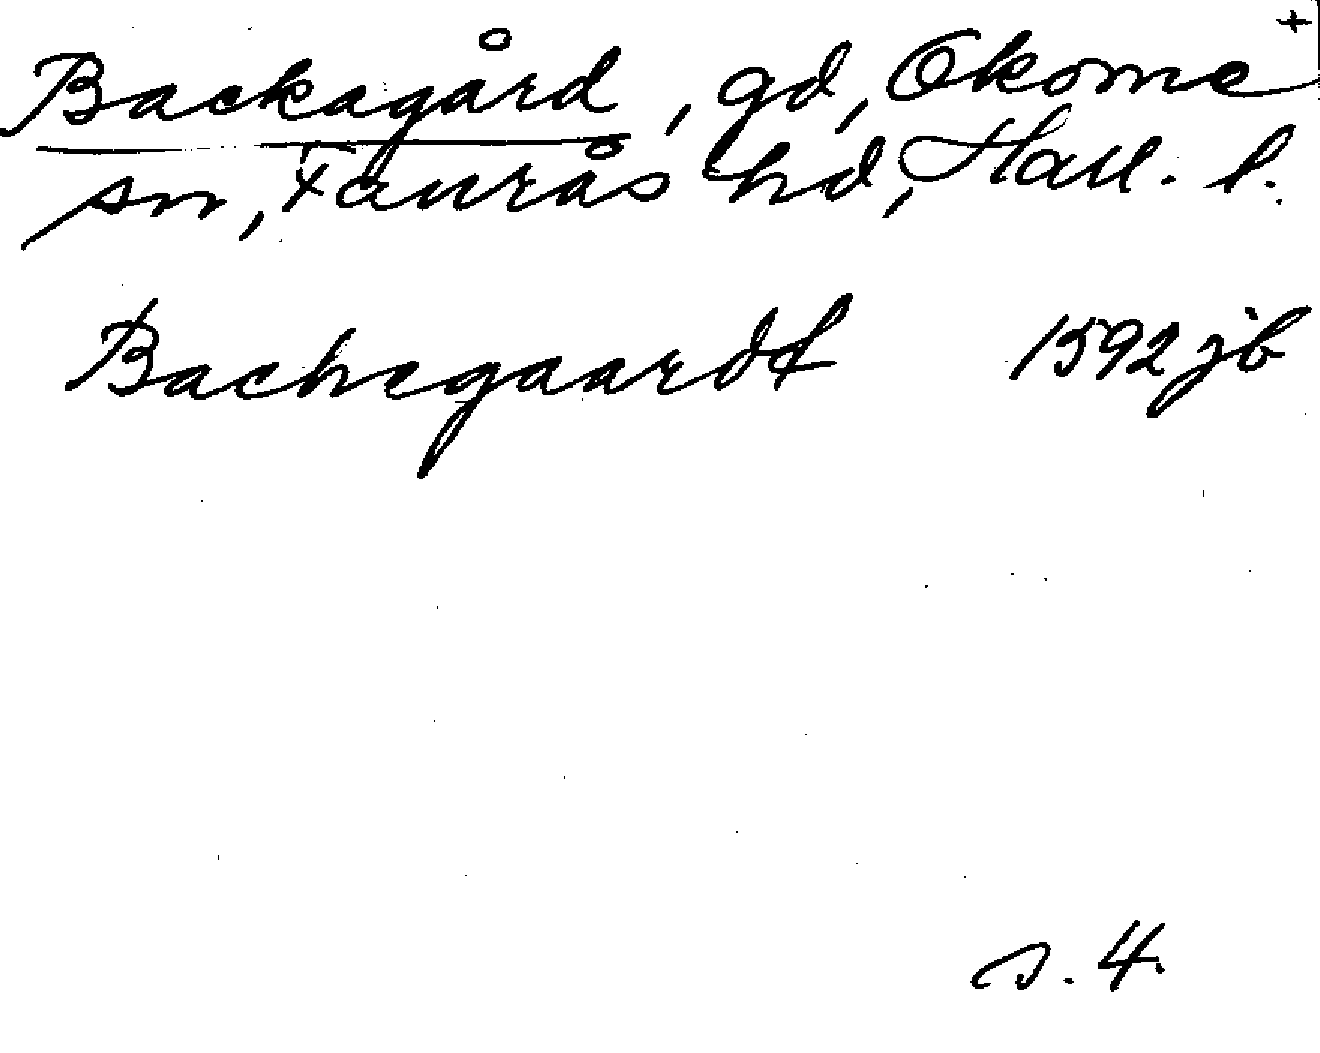 +
Backagård, gd, Okome
sn, Faurås hd, Hall. l.
Bachegaardt 1592 jb
s. 4.